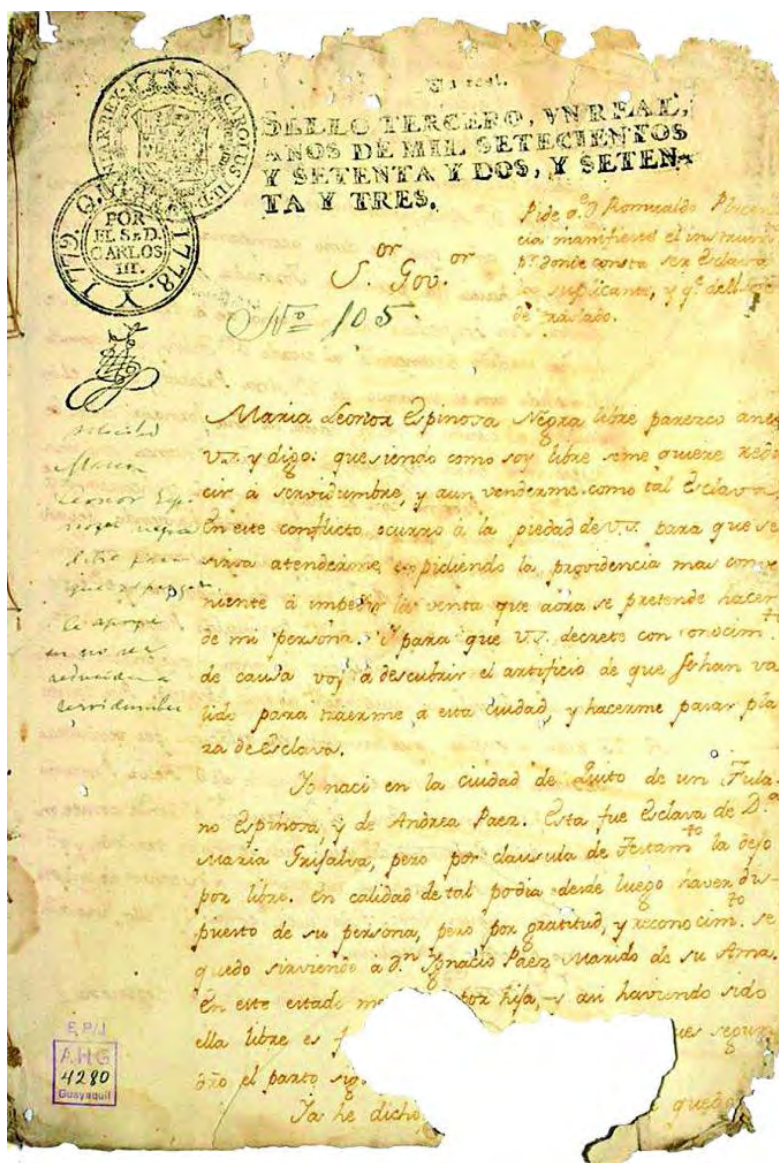 Un real.
SELLO TERCERO, VN REAL,
AÑOS DE MIL SETECIENTOS
Y SETENTA Y DOS, Y SETEN-
TA Y TRES.
CAROLUS III. D.
HISPANIAR. REX
1779. Y 1778.
POR
EL S.R D.
CARLOS
III.
Pide q.e D. Romualdo Placen
cia manifieste el instrum.to
p.r donde consta ser Esclava
la suplicante, y q.e de
de traslado.
S.or Gov.or
No 105.
Solicitud
Maria
Leonor Espi
nosa negra
libre para
que
le apoye
en no ser
reducida a
servidumbre
Maria Leonor Espinosa Negra libre parezco ante
V.S. y digo: que siendo como soy libre se me quiere redu
cir à servidumbre, y aun venderme como tal Esclava
En este conflicto ocurro à la piedad de V.S. para que se
sirva atenderme, expidiendo la providencia mas combe
niente à impedir la venta que aora se pretende hacer
de mi persona. Y para que V.S. decrete con conocim.to
de causa voy à descubrir el artificio de que se han va
lido para traerme à esta Ciudad, y hacerme pasar pla
za de Esclava.
Yo naci en la Ciudad de Quito de un Fula
no Espinosa, y de Andrea Paez. Esta fue Esclava de D.a
Maria Grisalva, pero por clausula de Testam.to la dejo
por libre. En calidad de tal podia desde luego haver dis
puesto de su persona, pero por gratitud, y reconocim.to se
quedo sirviendo à d.n Ygnacio Paez Marido de su Ama.
En este estado me por hija, y asi haviendo sido
ella libre es ues segun
dro el parto sig
Ya he dicho quedo
E.P/J
AHG
4280
Guayaquil